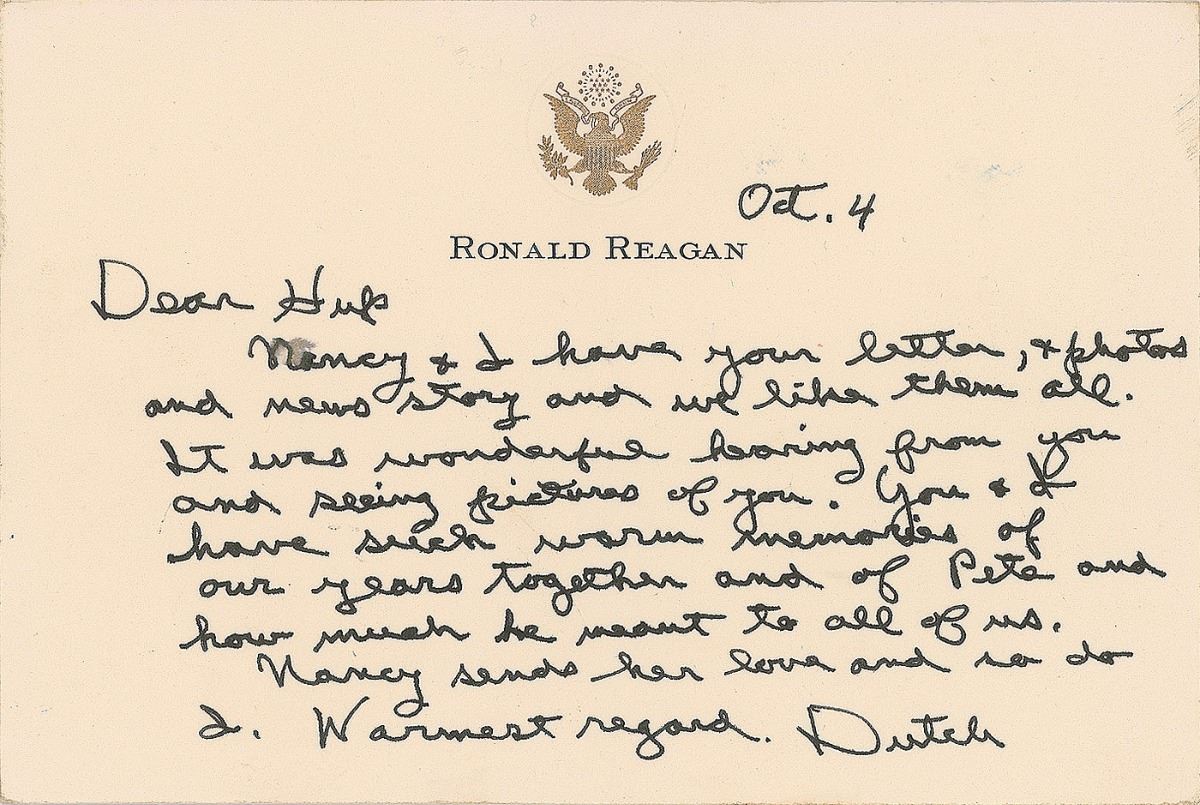 Oct. 4
RONALD REAGAN
Dear Hup
Nancy & I have your letter, & photos
and news story and we like them all.
It was wonderful hearing from you
and seeing pictures of you. You & I
have such warm memories of
our years together and of Pete and
how much he meant to all of us.
Nancy sends her love and so do
I. Warmest regard. Dutch